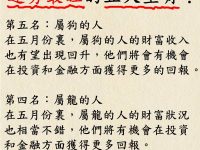 運勢最旺的五大生肖！
第五名：屬狗的人
在五月份裏，屬狗的人的財富收入
也有望出現回升，他們將會有機會
在投資和金融方面獲得更多的回報。
第四名：屬龍的人
在五月份裏，屬龍的人的財富狀況
也相當不錯，他們將有機會在投資
和金融方面獲得更多的回報。